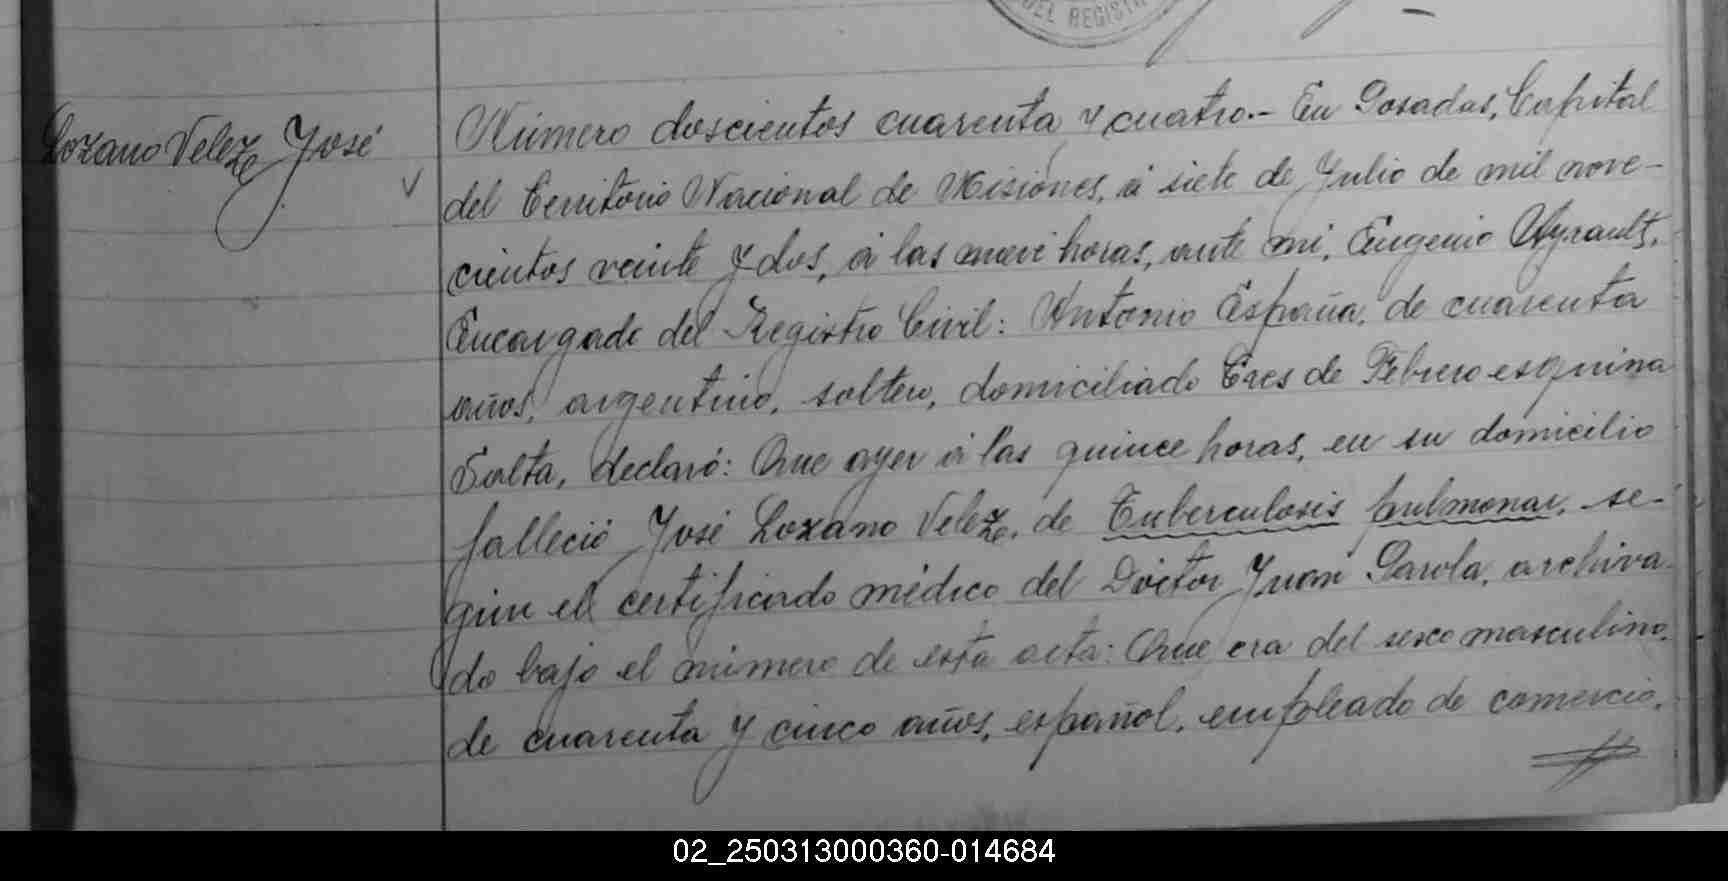 DEL REGIST
Lozano Velez José
Número doscientos cuarenta y cuatro.- En Posadas, Capital
del Territorio Nacional de Misiones, á siete de Julio de mil nove-
cientos veinte y dos, á las nueve horas, ante mi, Eugenio Ayrault,
Encargado del Registro Civil: Antonio España, de cuarenta
años, argentino, soltero, domiciliado Tres de Febrero esquina
Salta, declaró: Que ayer á las quince horas, en su domicilio
falleció José Lozano Velez, de Tuberculosis pulmonar, se-
gún el certificado médico del Doctor Juan Parola, archiva-
do bajo el número de esta acta: Que era del sexo masculino,
de cuarenta y cinco años, español, empleado de comercio,
02_250313000360-014684